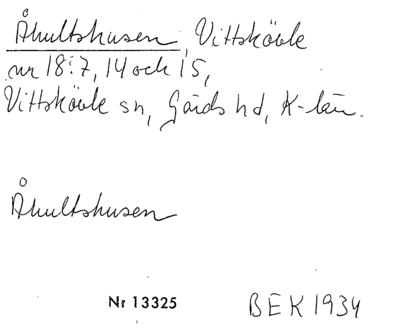 Åhultshusen, Vittskövle
nr 18:7, 14 och 15,
Vittskövle sn, Gärds hd, K-län.
Åhultshusen
Nr 13325 BEK 1934